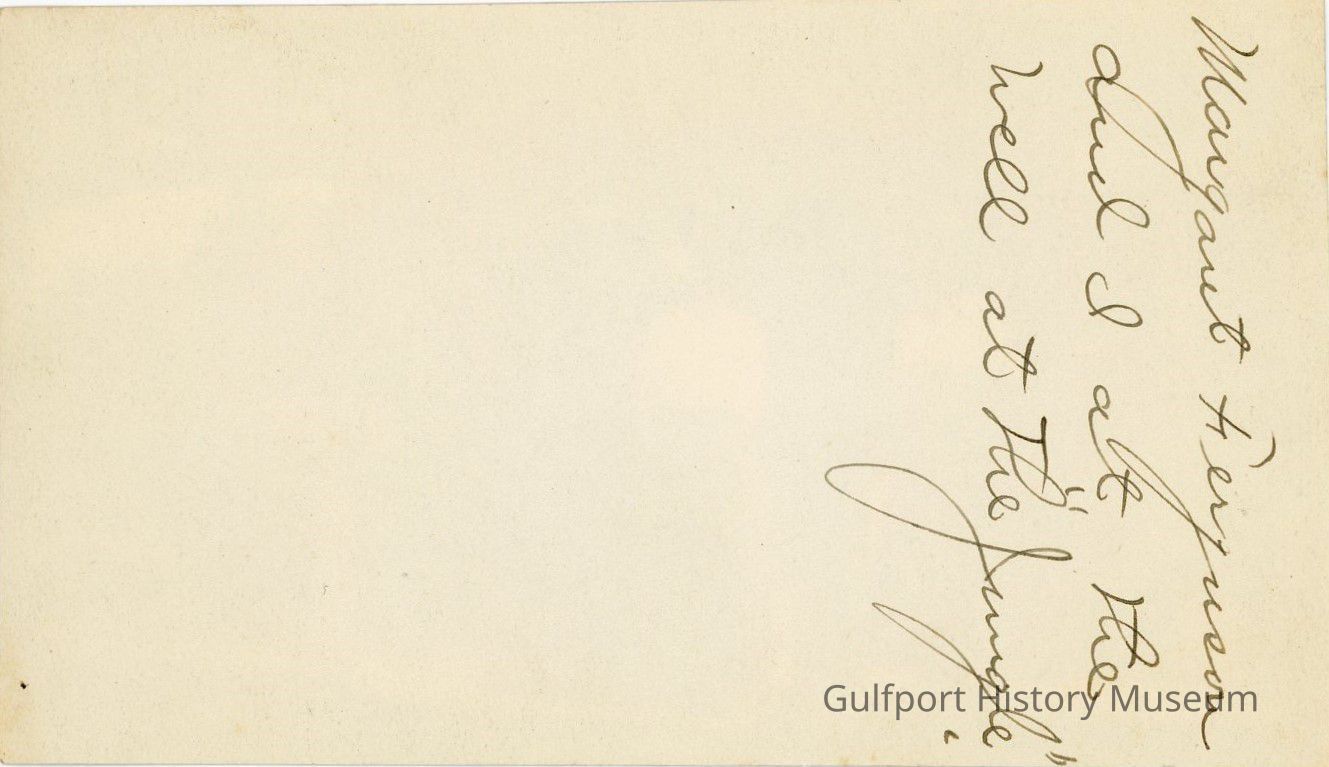 Margaret Ferguson
and I at the
well at the "Jungle".
Gulfport History Museum